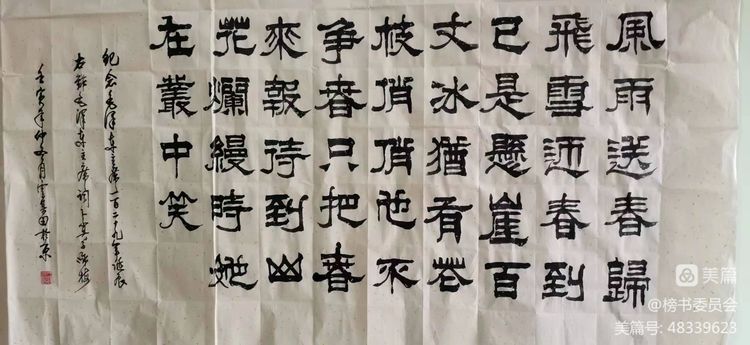 風雨送春歸
飛雪迎春到
已是懸崖百
丈冰猶有花
枝俏俏也不
争春只把春
來報待到山
花爛縵時她
在叢中笑
纪念毛澤东主席一百二十九年誕辰
右録毛澤东主席词卜算子咏梅
壬寅年仲冬月
美篇
@榜书委员会
美篇号: 48339623